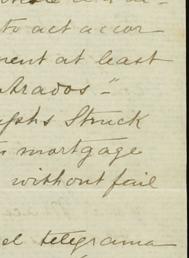 to act accor
ment at least
hrados -"
Struck
mortgage
without fail
el telegrama